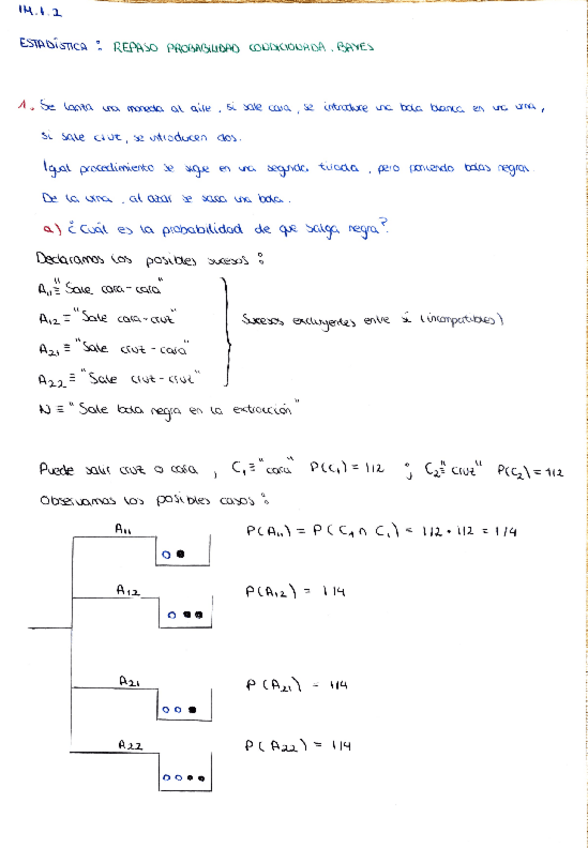 IM.1.2
ESTADÍSTICA : REPASO PROBABILIDAD CONDICIONADA, BAYES
1. Se lanza una moneda al aire, si sale cara, se introduce una bola blanca en una urna,
si sale cruz, se introducen dos.
Igual procedimiento se sigue en una segunda tirada, pero poniendo bolas negras.
De la urna, al azar se saca una bola.
a) ¿Cuál es la probabilidad de que salga negra?
Declaramos los posibles sucesos:
A₁₁ ≡ "Sale cara-cara"
A₁₂ ≡ "Sale cara-cruz"
Sucesos excluyentes entre sí (incompatibles)
A₂₁ ≡ "Sale cruz-cara"
A₂₂ ≡ "Sale cruz-cruz"
N ≡ "Sale bola negra en la extracción"
Puede salir cruz o cara, C₁ ≡ "cara" P(C₁) = 1/2 ; C₂ ≡ "cruz" P(C₂) = 1/2
Observamos los posibles casos:
A₁₁ P(A₁₁) = P(C₁ ∩ C₁) = 1/2 · 1/2 = 1/4
A₁₂ P(A₁₂) = 1/4
A₂₁ P(A₂₁) = 1/4
A₂₂ P(A₂₂) = 1/4